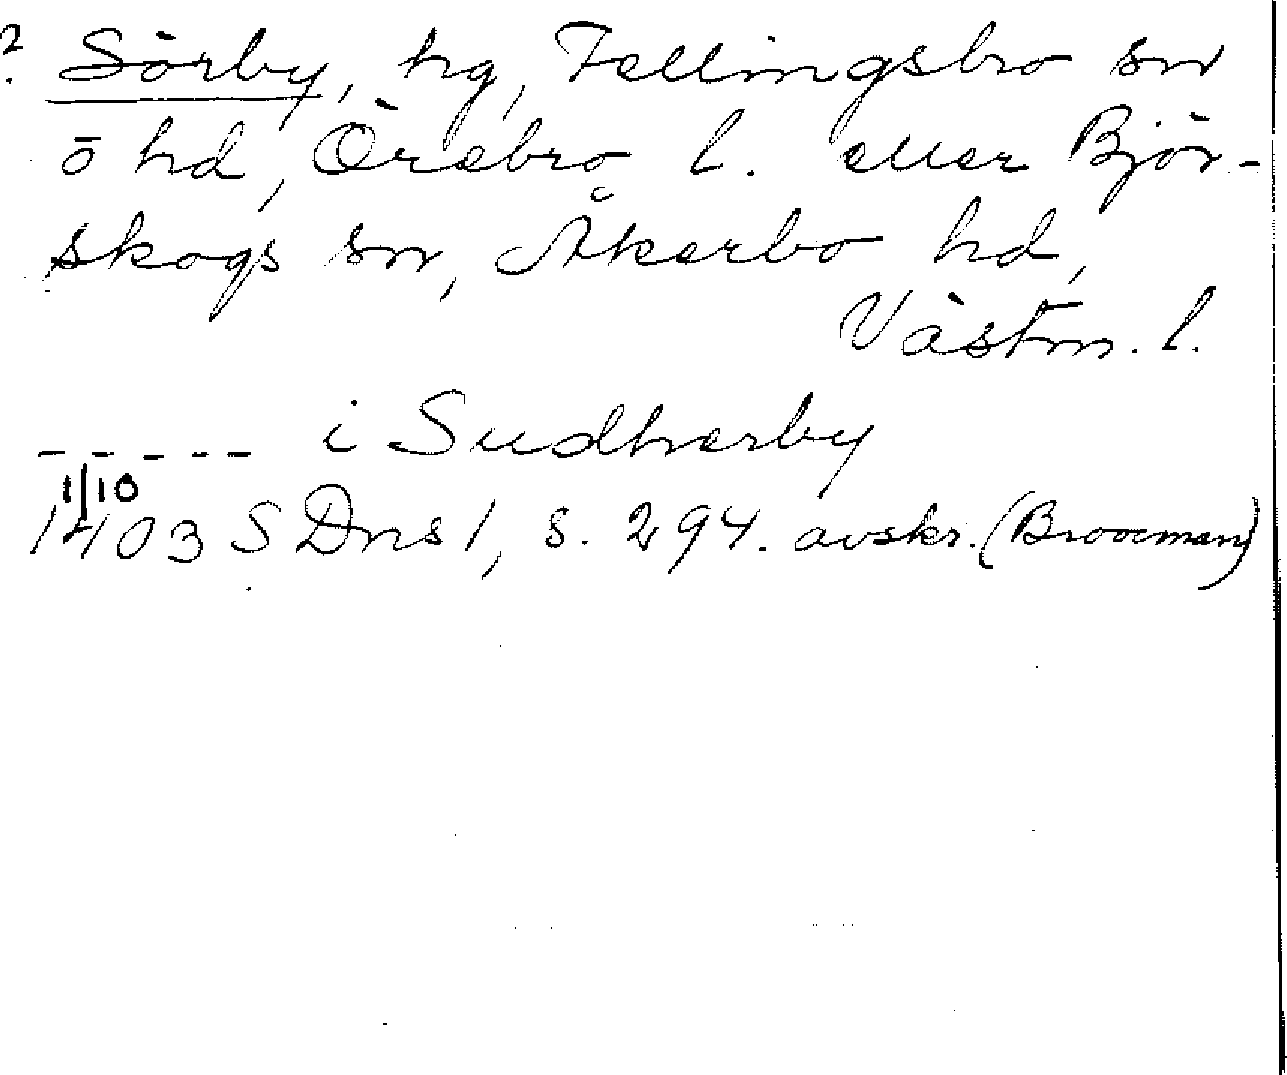 ? Sörby, hg, Fellingsbro sn
ö hd, Örebro l. eller Björ-
skogs sn, Åkerbo hd,
Västm. l.
- - - - - i Sudherby
1/10
1403 SDns 1, s. 294. avskr. (Broocman)